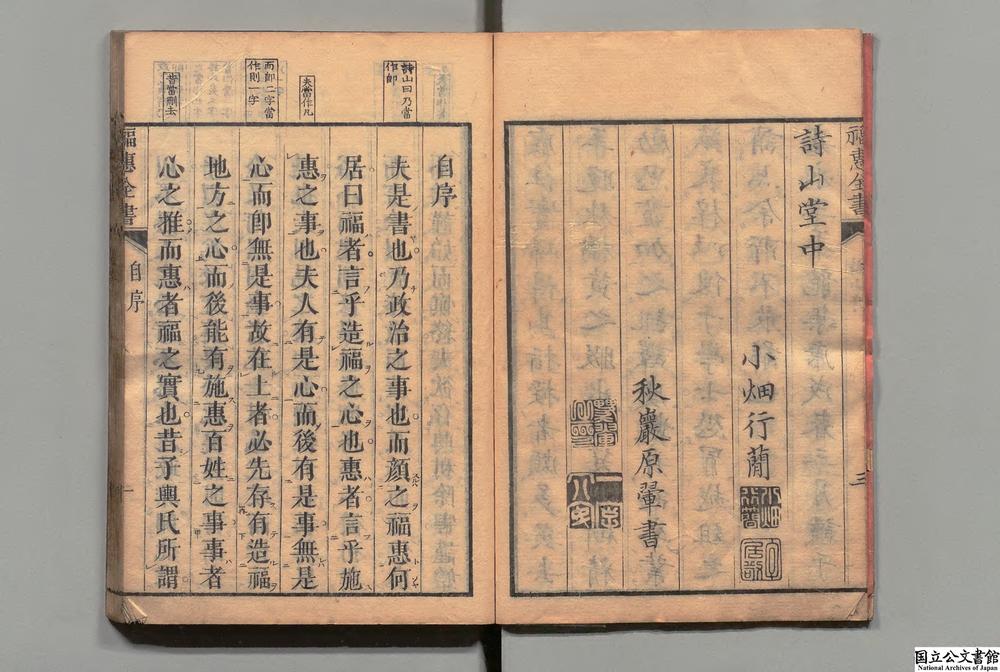 福惠全書
三
詩山堂中
小畑行蕑
秋巖原翬書
詩山曰乃當
作即
夫當作凡
而即二字當
作則一字
昔當刪去
自序
夫是書也乃政治之事也而顏之福惠何
居曰福者言乎造福之心也惠者言乎施
惠之事也夫人有是心而後有是事無是
心而卽無是事故在上者必先存有造福
地方之心而後能有施惠百姓之事事者
心之推而惠者福之實也昔子輿氏所謂
福惠全書
自序
一
国立公文書館
National Archives of Japan